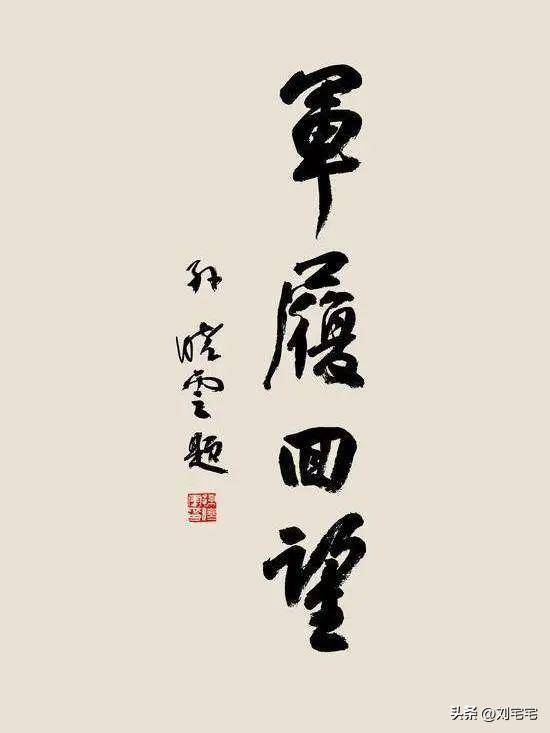 軍履回望
孙晓雲题
头条 @刘宅宅